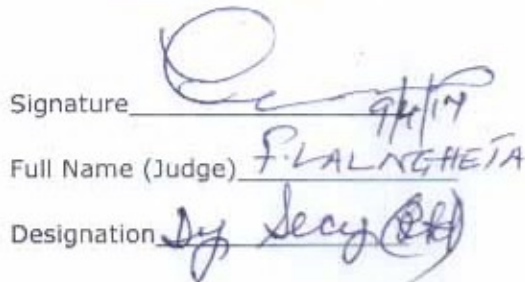 Signature
9/4/14
Full Name (Judge) F. LALNGHETA
Designation Dy Secy